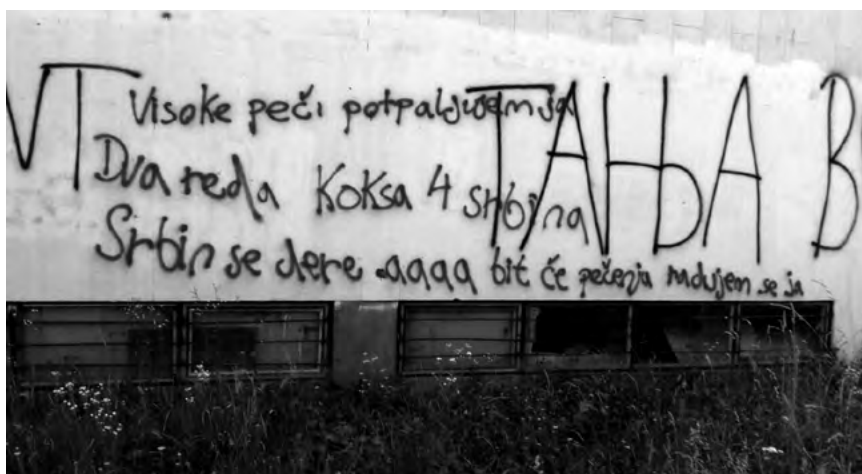 VT ТАЊА В
Visoke peči potpaljujem ja
Dva reda Koksa 4 srbina
Srbin se dere .aaaa bit će pečenja radujem se ja